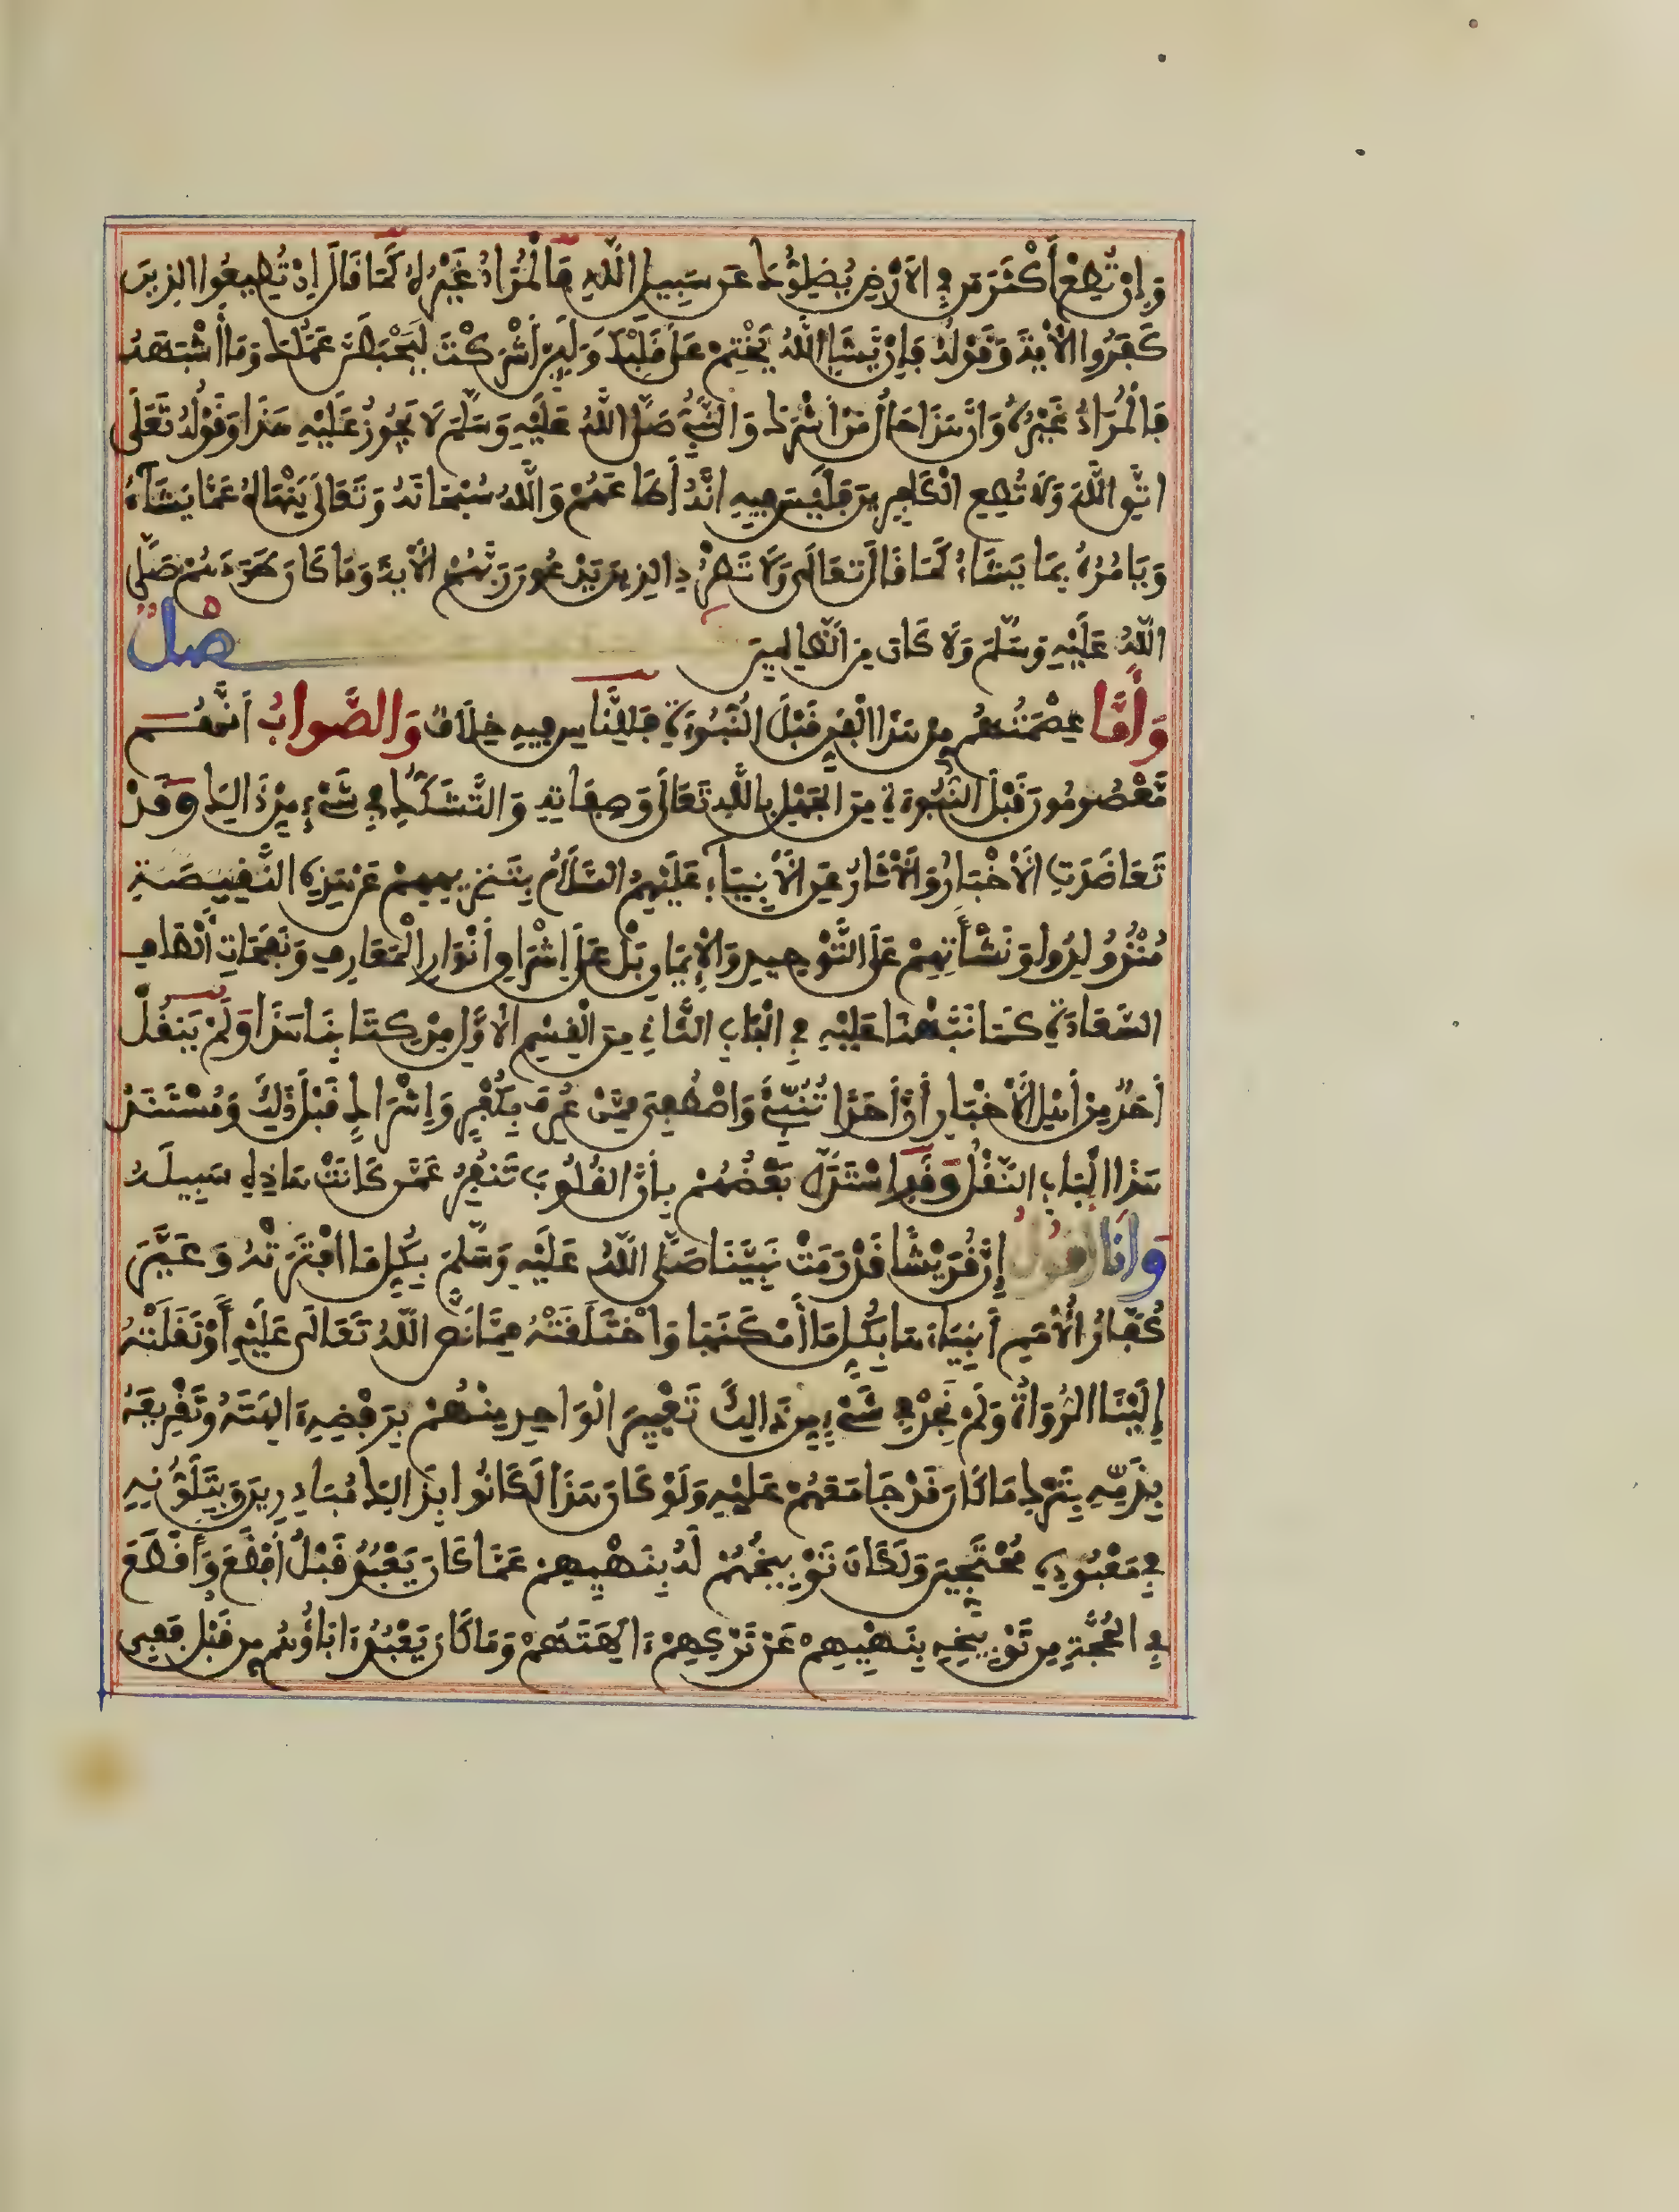 وَإِن تُطِعْ أَكْثَرَ مَن فِي الأَرْضِ يُضِلُّوكَ عَن سَبِيلِ اللَّهِ فَالْمُرَادُ غَيْرُهُ كَمَا قَالَ إِن تُطِيعُوا الذِينَ
كَفَرُوا الأيَةَ وَقَوْلُهُ فَإِنْ يَّشَإِ اللَّهُ يَخْتِمْ عَلَى قَلْبِكَ وَلَئِنْ أَشْرَكْتَ لَيَحْبَطَنَّ عَمَلُكَ وَمَا أَشْبَهَهُ
فَالْمُرَادُ غَيْرُهُ وَأَنَّ هَذَا حَالُ مَنْ أَشْرَكَ وَالنَّبِيُّ صَلَّى اللَّهُ عَلَيْهِ وَسَلَّمَ لَا يَجُوزُ عَلَيْهِ هَذَا وَقَوْلُهُ تَعَلَى
اتَّقِ اللَّهَ وَلَا تُطِعِ الْكَافِرِينَ فَلَيْسَ فِيهِ أَنَّهُ أَطَاعَهُمْ وَاللَّهُ سُبْحَانَهُ وَتَعَالَى يَنْهَاهُ عَمَّا يَشَاءُ
وَيَامُرُهُ بِمَا يَشَاءُ كَمَا قَالَ تَعَالَى وَلَا تَطْرُدِ الذِينَ يَدْعُونَ رَبَّهُمْ الأيَةَ وَمَا كَانَ طَرَدَهُمْ صَلَّى
اللَّهُ عَلَيْهِ وَسَلَّمَ وَلَا كَانَ مِنَ الظَّالِمِينَ فصل
وَأَمَّا عِصْمَتُهُم مِنْ هَذَا الْفَنِّ قَبْلَ النُّبُوَةِ فَلِلنَّاسِ فِيهِ خِلَافٌ وَالصَّوابُ أَنَّهُمْ
مَّعْصُومُونَ قَبْلَ النُّبُوَةِ مِنَ الْجَهْلِ بِاللَّهِ تَعَالَى وَصِفَاتِهِ وَالتَّشَكُّكِ فِي شَيْءٍ مِنْ ذَالِكَ وَقَدْ
تَعَاضَدَتِ الأَخْبَارُ وَالأَثَارُ عَنِ الأَنْبِيَاءِ عَلَيْهِمُ السَّلَامُ بِتَنْزِيهِهِمْ عَنْ هَذِهِ النَّقِيصَةِ
مُنْذُ وُلِدُوا وَنَشْأَتِهِمْ عَلَى التَّوْحِيدِ وَالإِيمَانِ بَلْ عَلَى إِشْرَاقِ أَنْوَارِ الْمَعَارِفِ وَنَفَحَاتِ أَلْطَافِ
السَّعَادَةِ كَمَا نَبَّهْنَا عَلَيْهِ فِي الْبَابِ الثَّانِي مِنَ الْقِسْمِ الأَوَّلِ مِنْ كِتَابِنَا هَذَا وَلَمْ يَنْقُلْ
أَحَدٌ مِنْ أَهْلِ الأَخْبَارِ أَنَّ أَحَدًا نُبِّئَ وَاصْطُفِيَ مِمَّنْ عُرِفَ بِكُفْرٍ وَإِشْرَاكٍ قَبْلَ ذَلِكَ وَمُسْتَنَدُ
هَذَا الْبَابِ النَّقْلُ وَقَدِ اسْتَدَلَّ بَعْضُهُمْ بِأَنَّ الْقُلُوبَ تَنْفِرُ عَمَّن كَانَتْ هَاذِهِ سَبِيلَهُ
وَأَنَا أَقُولُ إِنَّ قُرَيْشًا قَدْ رَمَتْ نَبِيَّنَا صَلَّى اللَّهُ عَلَيْهِ وَسَلَّمَ بِكُلِّ مَا افْتَرَتْهُ وَعَيَّرَ
كُفَّارُ الأُمَمِ أَنْبِيَاءَهَا بِكُلِّ مَا أَمْكَنَهَا وَاخْتَلَقَتْهُ مِمَّا نَصَّ اللَّهُ تَعَالَى عَلَيْهِ أَوْ نَقَلَتْهُ
إِلَيْنَا الرُّوَاةُ وَلَمْ نَجِدْ فِي شَيْءٍ مِنْ ذَالِكَ تَعْيِيرَ الْوَاحِدِ مِنْهُمْ بِرَفْضِهِ ءَالِهَتَهُ وَتَقْرِيعَهُ
بِذَمِّهِ بِتَرْكِ مَا كَانَ قَدْ جَامَعَهُمْ عَلَيْهِ وَلَوْ كَانَ هَذَا لَكَانُوا بِذَالِكَ مُبَادِرِينَ وَبِتَلَوُّنِهِ
فِي مَعْبُودِهِ مُحْتَجِّينَ وَلَكَانَ تَوْبِيخُهُمْ لَهُ بِنَهْيِهِمْ عَمَّا كَانَ يَعْبُدُ قَبْلُ أَفْظَعَ وَأَقْطَعَ
فِي الْحُجَّةِ مِن تَوْبِيخِهِ بِنَهْيِهِمْ عَنْ تَرْكِهِمْ ءَالِهَتَهُمْ وَمَا كَانَ يَعْبُدُ ءَابَاؤُهُم مِن قَبْلُ فَفِي